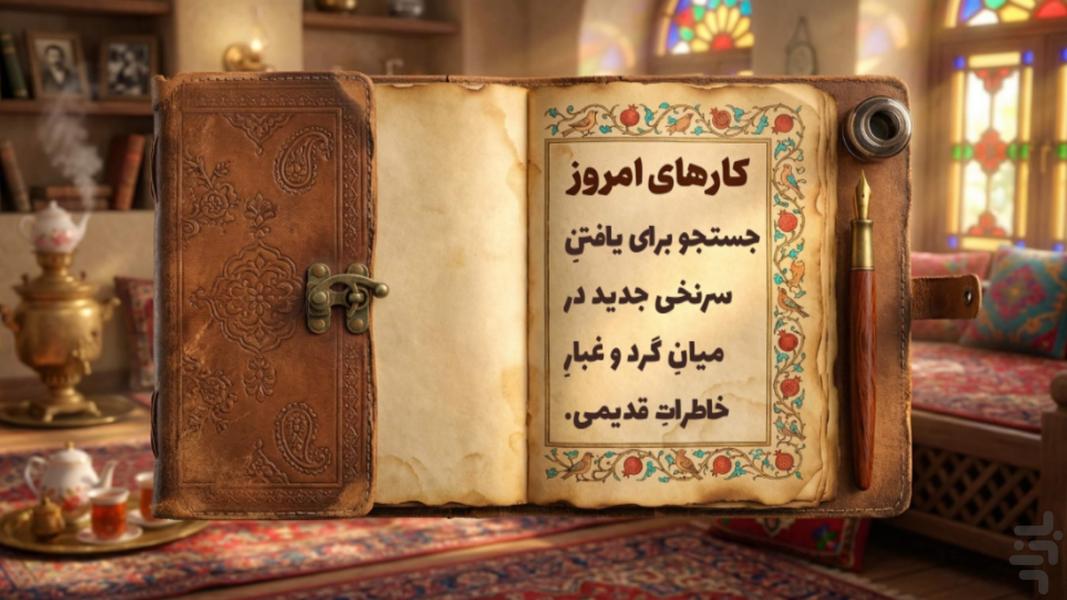 کارهای امروز
جستجو برای یافتنِ
سرنخی جدید در
میانِ گرد و غبارِ
خاطراتِ قدیمی.